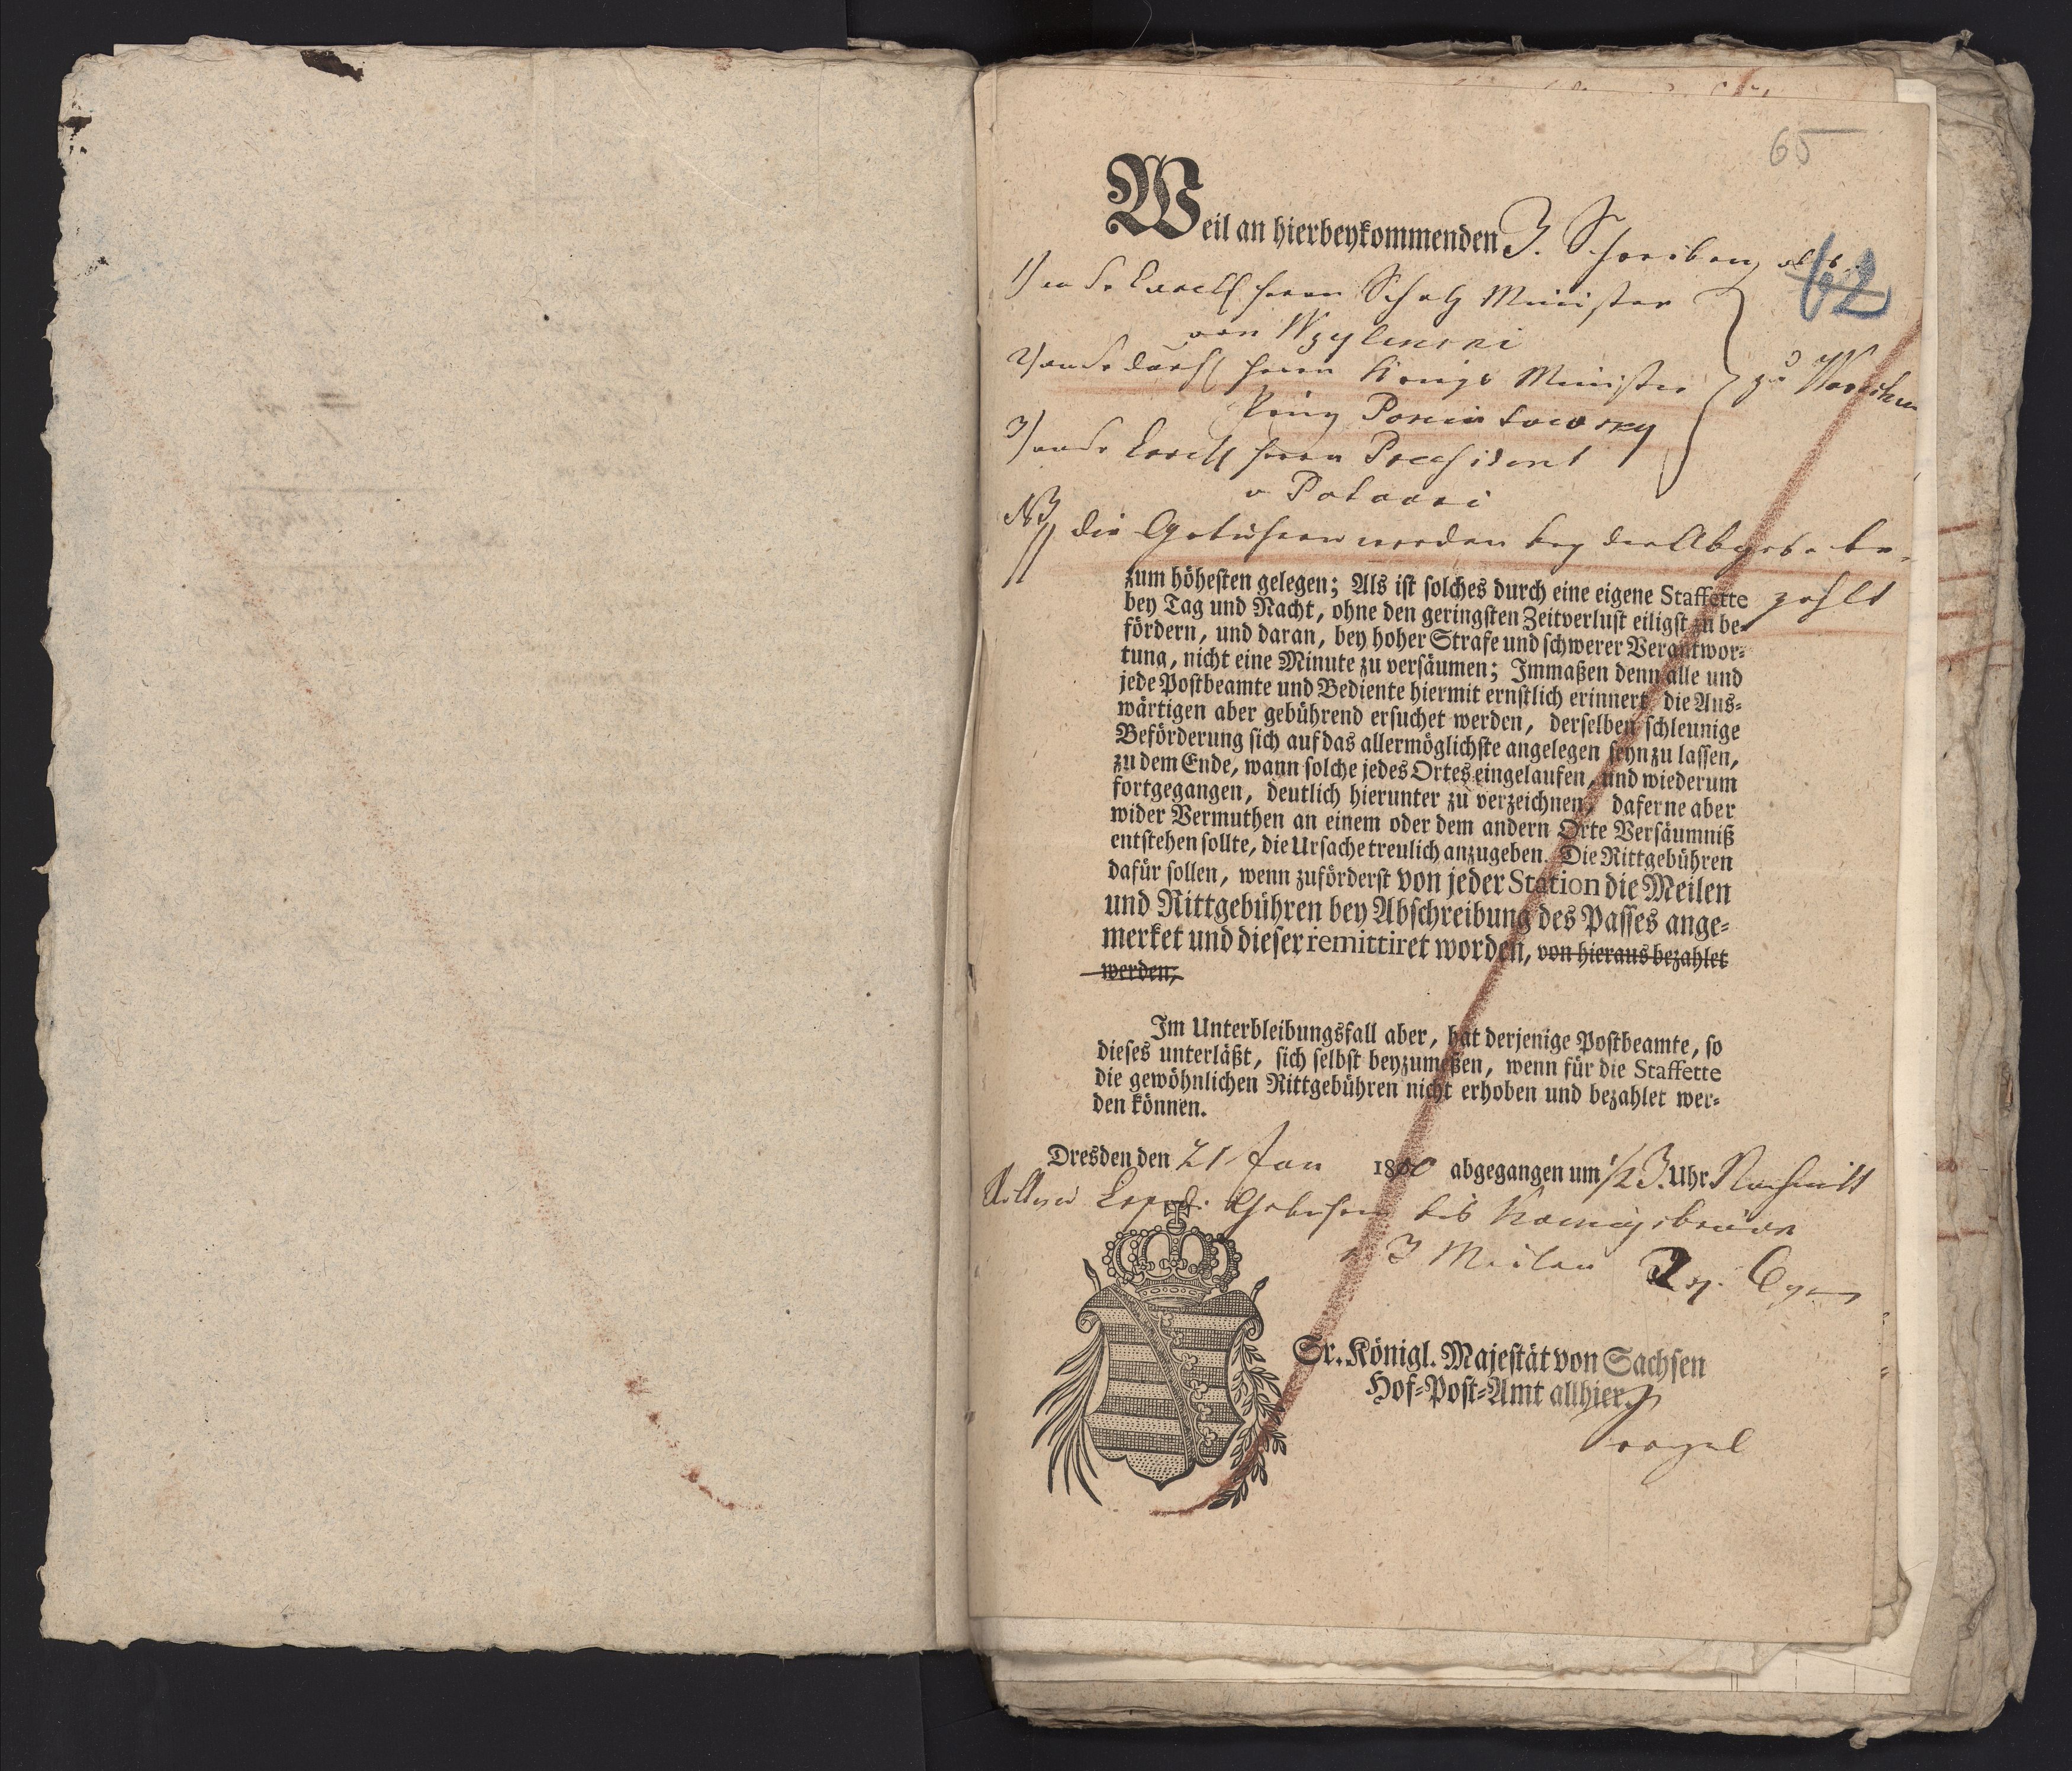 65
Weil an hierbeykommenden 3. Schreiben
62
1) an Sr Excell herrn Schatz Minister
von
2) an Sr Durchl herrn Kriegs Minister
Prinz Poniatowsky
zu Warschau
3) an Sr Excell herrn Praesident
v Potocki
NB die Gebühren werden bey der Abgabe be-
zahlt
zum höhesten gelegen; Als ist solches durch eine eigene Staffette
bey Tag und Nacht, ohne den geringsten Zeitverlust eiligst zu be-
fördern, und daran, bey hoher Strafe und schwerer Verantwor-
tung, nicht eine Minute zu versäumen; Immaßen denn alle und
jede Postbeamte und Bediente hiermit ernstlich erinnert, die Aus-
wärtigen aber gebührend ersuchet werden, derselben schleunige
Beförderung sich auf das allermöglichste angelegen seyn zu lassen,
zu dem Ende, wann solche jedes Ortes eingelaufen, und wiederum
fortgegangen, deutlich hierunter zu verzeichnen, daferne aber
wider Vermuthen an einem oder dem andern Orte Versäumniß
entstehen sollte, die Ursache treulich anzugeben. Die Rittgebühren
dafür sollen, wenn zuförderst von jeder Station die Meilen
und Rittgebühren bey Abschreibung des Passes ange-
merket und dieser remittiret worden, von hieraus bezahlet
werden,
Im Unterbleibungsfall aber, hat derjenige Postbeamte, so
dieses unterläßt, sich selbst beyzumeßen, wenn für die Staffette
die gewöhnlichen Rittgebühren nicht erhoben und bezahlet wer-
den können.
Dresden den 21 Jan 1810 abgegangen um 1/2 3. Uhr Nachmitt
Gebühren bis Koenigsbrück
3 Meilen
Sr. Königl. Majestät von Sachsen
Hof-Post-Amt allhier.
Vogel